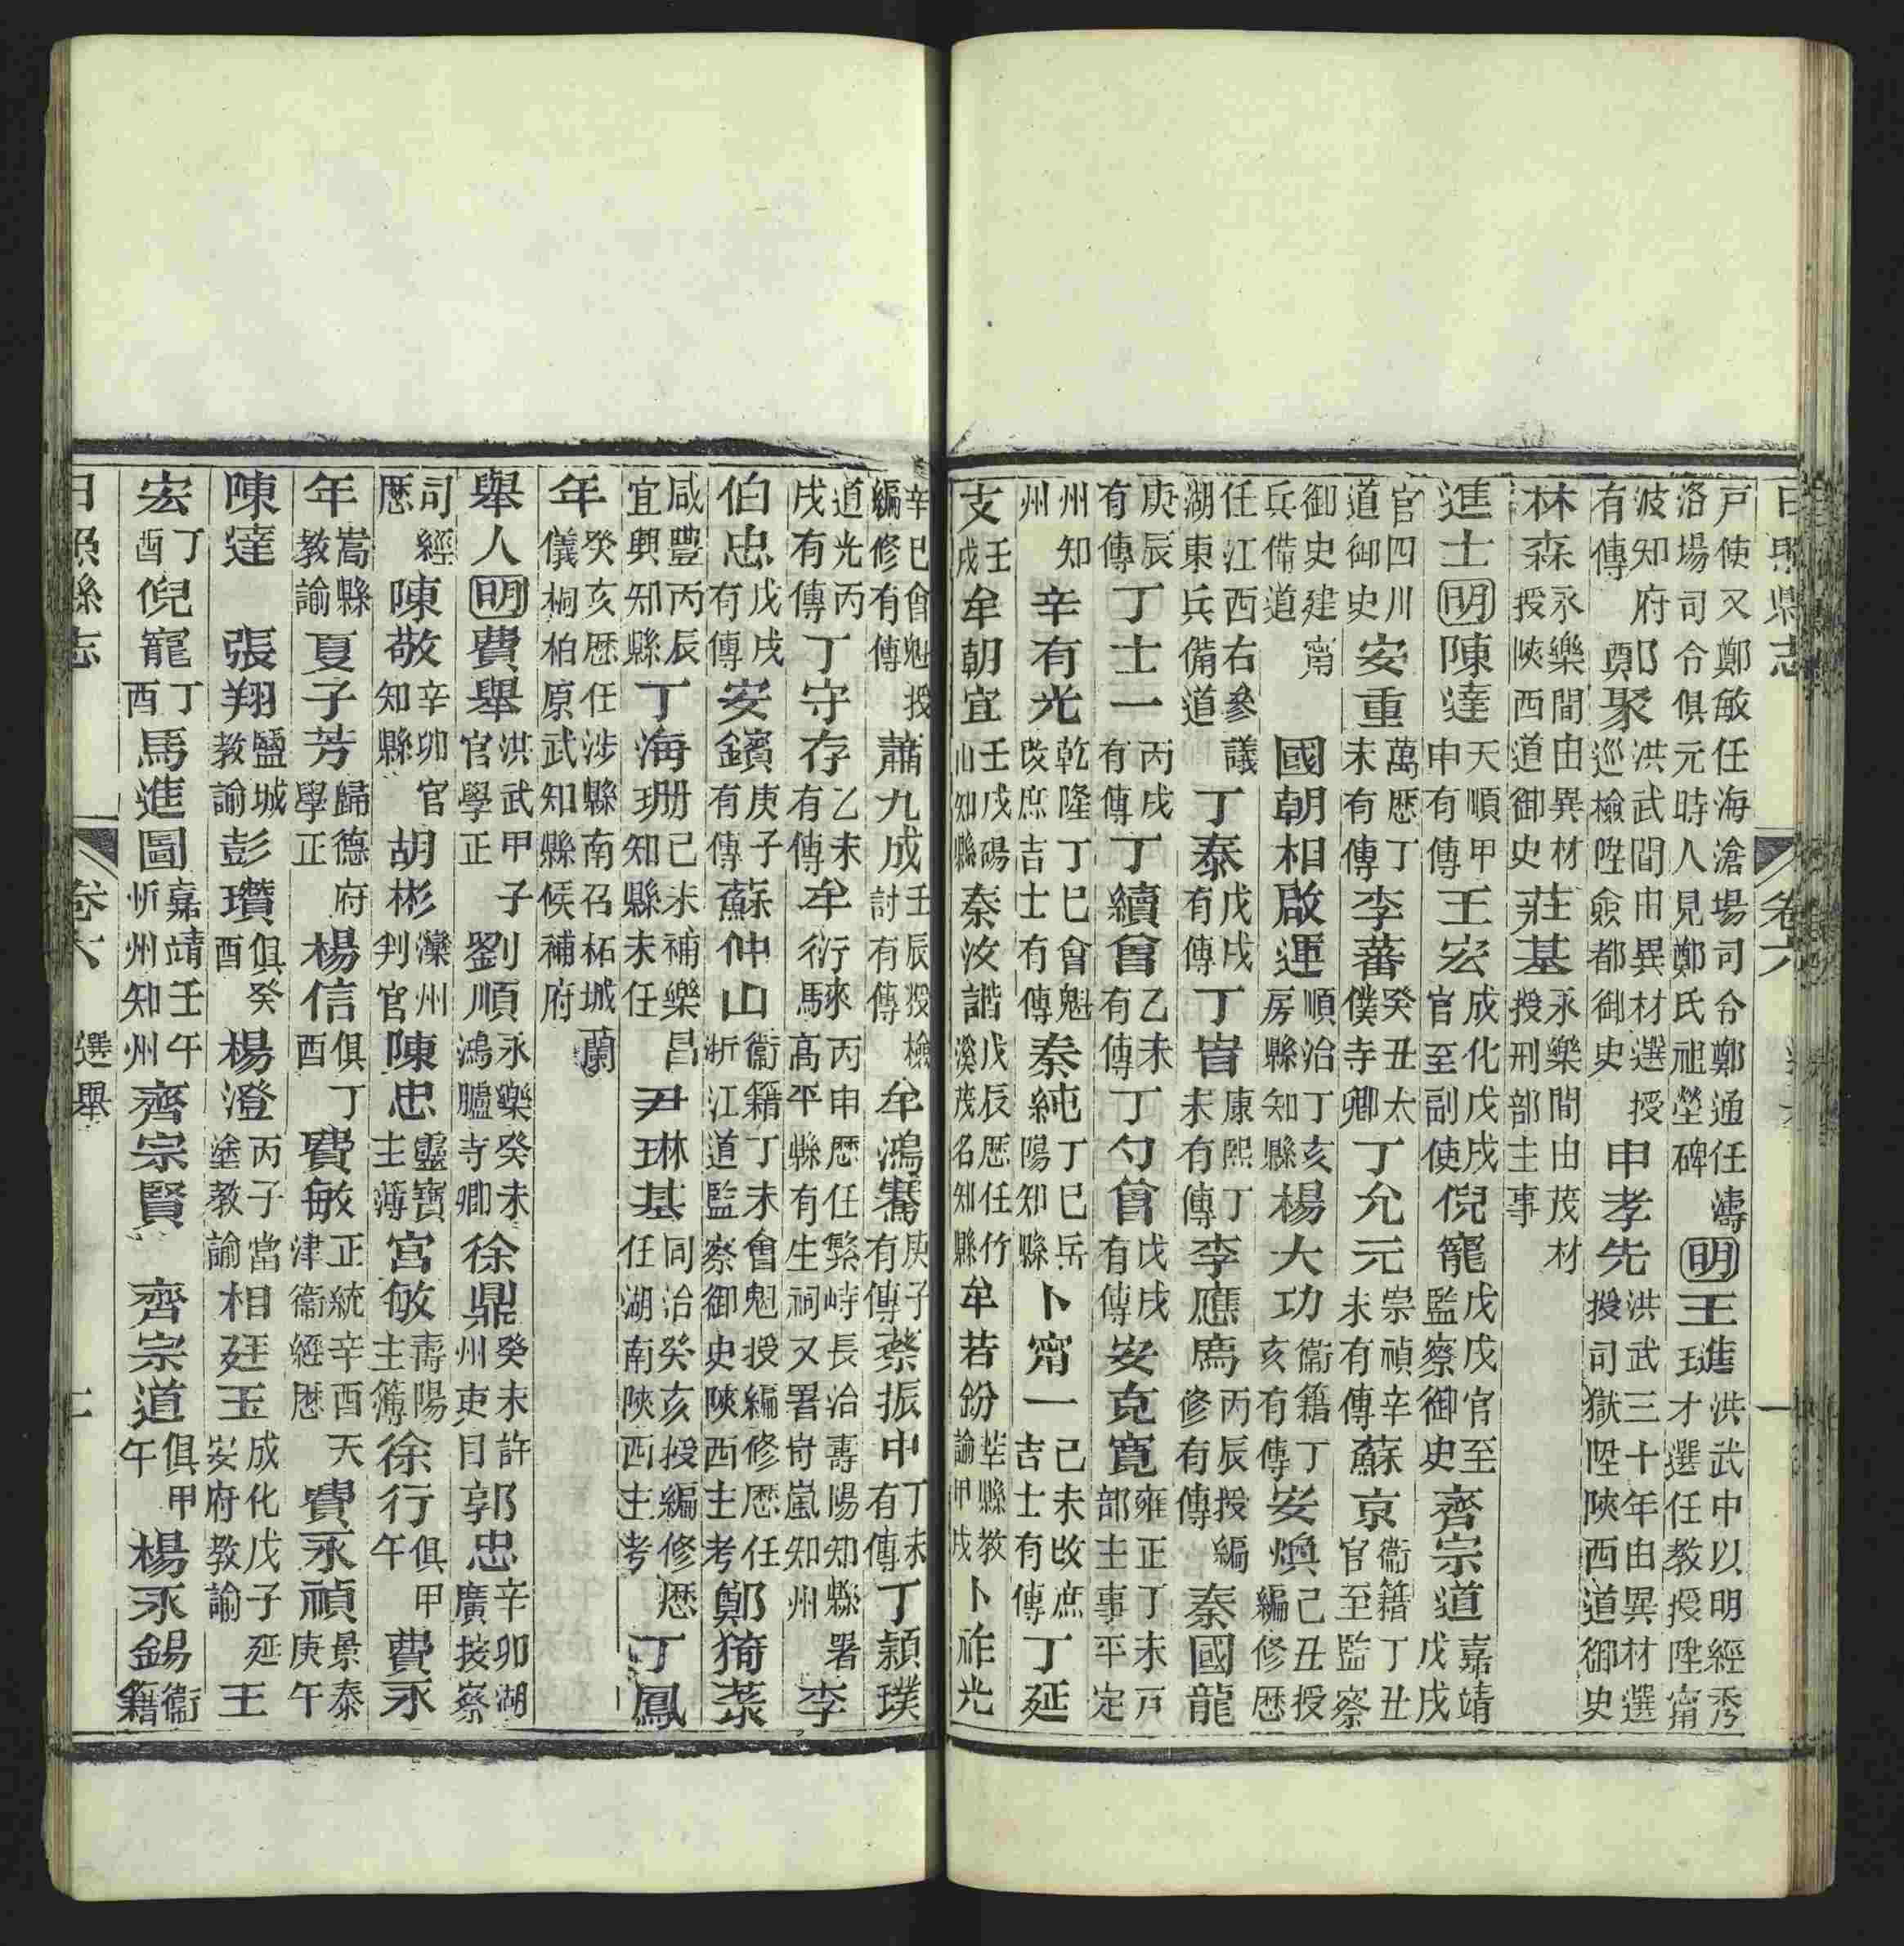 日照縣志 卷六 一
戸使又鄭敏任海滄場司令鄭通任濤洛場司令俱元時人見鄭氏祖塋碑明王璡洪武中以明經秀才選任教授陞甯
波知府有傳鄭聚洪武間由異材選授巡檢陞僉都御史申孝先洪武三十年由異材選授司獄陞陝西道御史
林森永樂間由異材授陝西道御史莊基永樂間由茂材授刑部主事
進士明陳達天順甲申有傳王宏成化戊戌官至副使倪寵戊戌官至監察御史齊宗道嘉靖戊戌
官四川道御史安重萬歷丁未有傳李蕃癸丑太僕寺卿丁允元崇禎辛未有傳蘇京衞籍丁丑官至監察
御史建甯兵備道國朝相啟運順治丁亥房縣知縣楊大功衞籍丁亥有傳安煥己丑授編修歷
任江西右參議湖東兵備道丁泰戊戌有傳丁旹康熙丁未有傳李應廌丙辰授編修有傳秦國龍
庚辰有傳丁士一丙戌有傳丁續曾乙未有傳丁勺曾戊戌有傳安克寬雍正丁未戸部主事平定
州知州辛有光乾隆丁巳會魁改庶吉士有傳秦純丁巳岳陽知縣卜甯一己未改庶吉士有傳丁延
支壬戌牟朝宜壬戌碭山知縣秦汝諧戊辰歷任竹溪茂名知縣牟若鈖莖縣教諭甲戌卜祚光
辛巳會魁授編修有傳蕭九成壬辰授檢討有傳牟鴻騫庚子有傳蔡振中丁未有傳丁潁璞
道光丙戌有傳丁守存乙未有傳牟衍駪丙申歷任繁峙長治壽陽知縣署高平縣有生祠又署岢嵐知州李
伯忠戊戌有傳安鑌庚子有傳蘇仲山衞籍丁未會魁授編修歷任浙江道監察御史陝西主考鄭猗菉
咸豐丙辰宜興知縣丁海珊己未補樂昌知縣未任尹琳基同治癸亥授編修歷任湖南陝西主考丁鳳
年癸亥歷任涉縣南召柘城蘭儀桐柏原武知縣候補府
舉人明費舉洪武甲子官學正劉順永樂癸未鴻臚寺卿徐鼎癸未許州吏目郭忠辛卯湖廣按察
司經歷陳敬辛卯官知縣胡彬灤州判官陳忠靈寶主薄宮敏壽陽主簿徐行俱甲午費永
年嵩縣教諭夏子芳歸德府學正楊信俱丁酉費敏正統辛酉天津衞經歷費永禎景泰庚午
陳達張翔鹽城教諭彭瓚俱癸酉楊澄丙子當塗教諭相廷玉成化戊子延安府教諭王
宏丁酉倪寵丁酉馬進圖嘉靖壬午忻州知州齊宗賢齊宗道俱甲午楊永錫衞籍
日照縣志 卷六 選舉